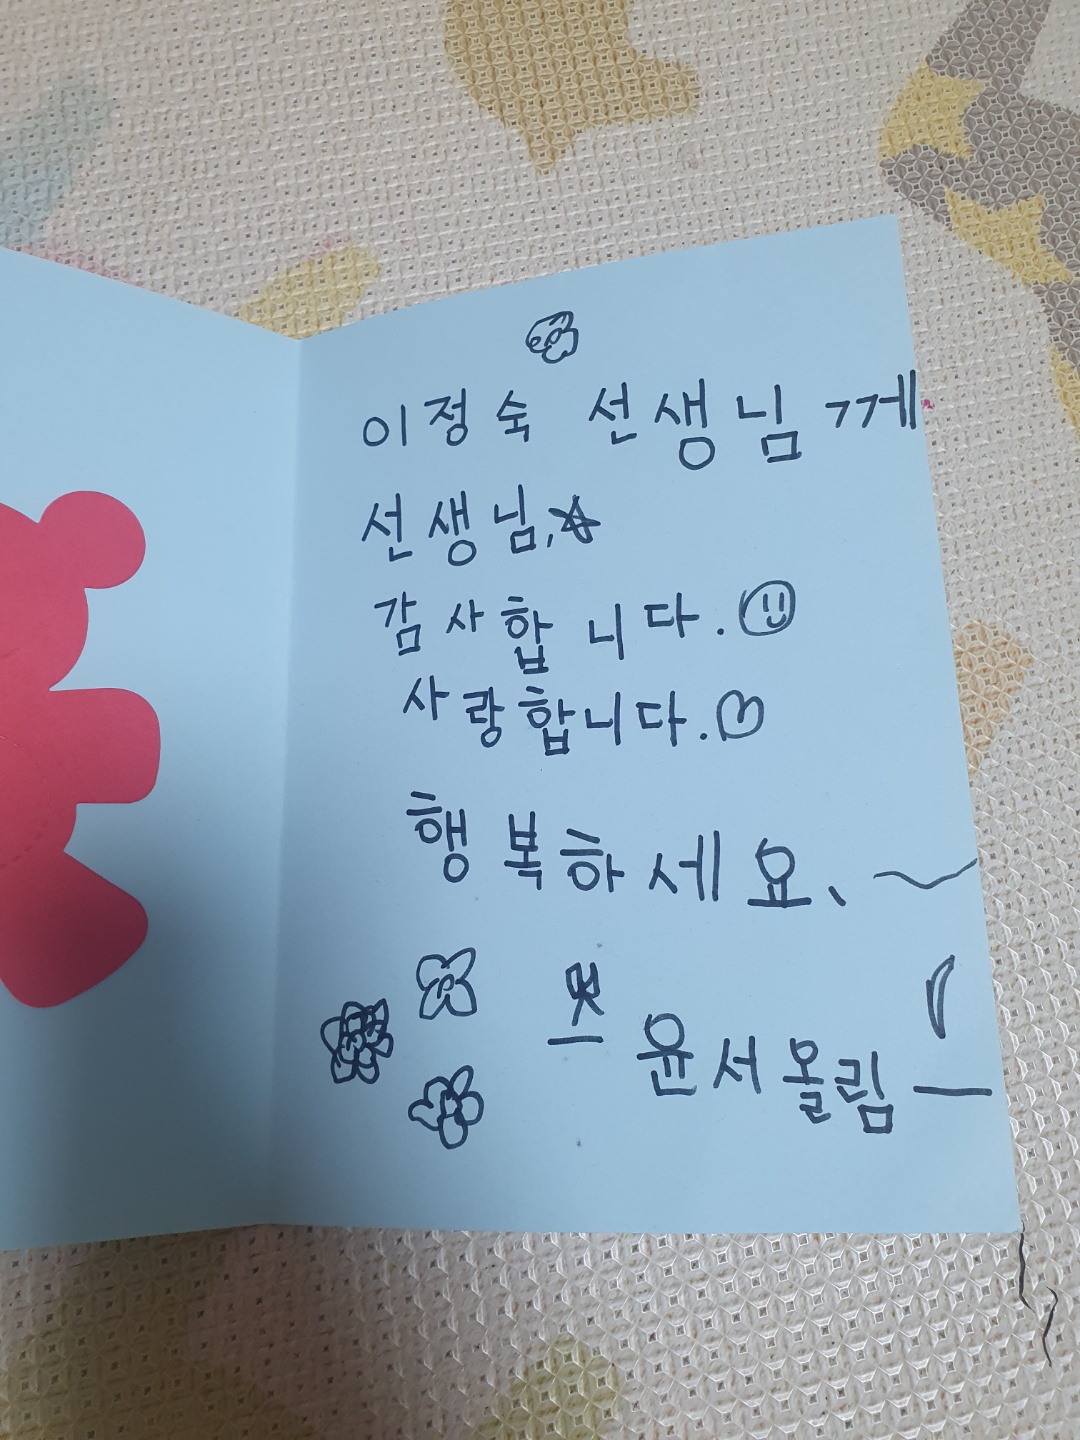 이정숙 선생님께
선생님,
감사합니다.
사랑합니다.
행복하세요.
윤서올림